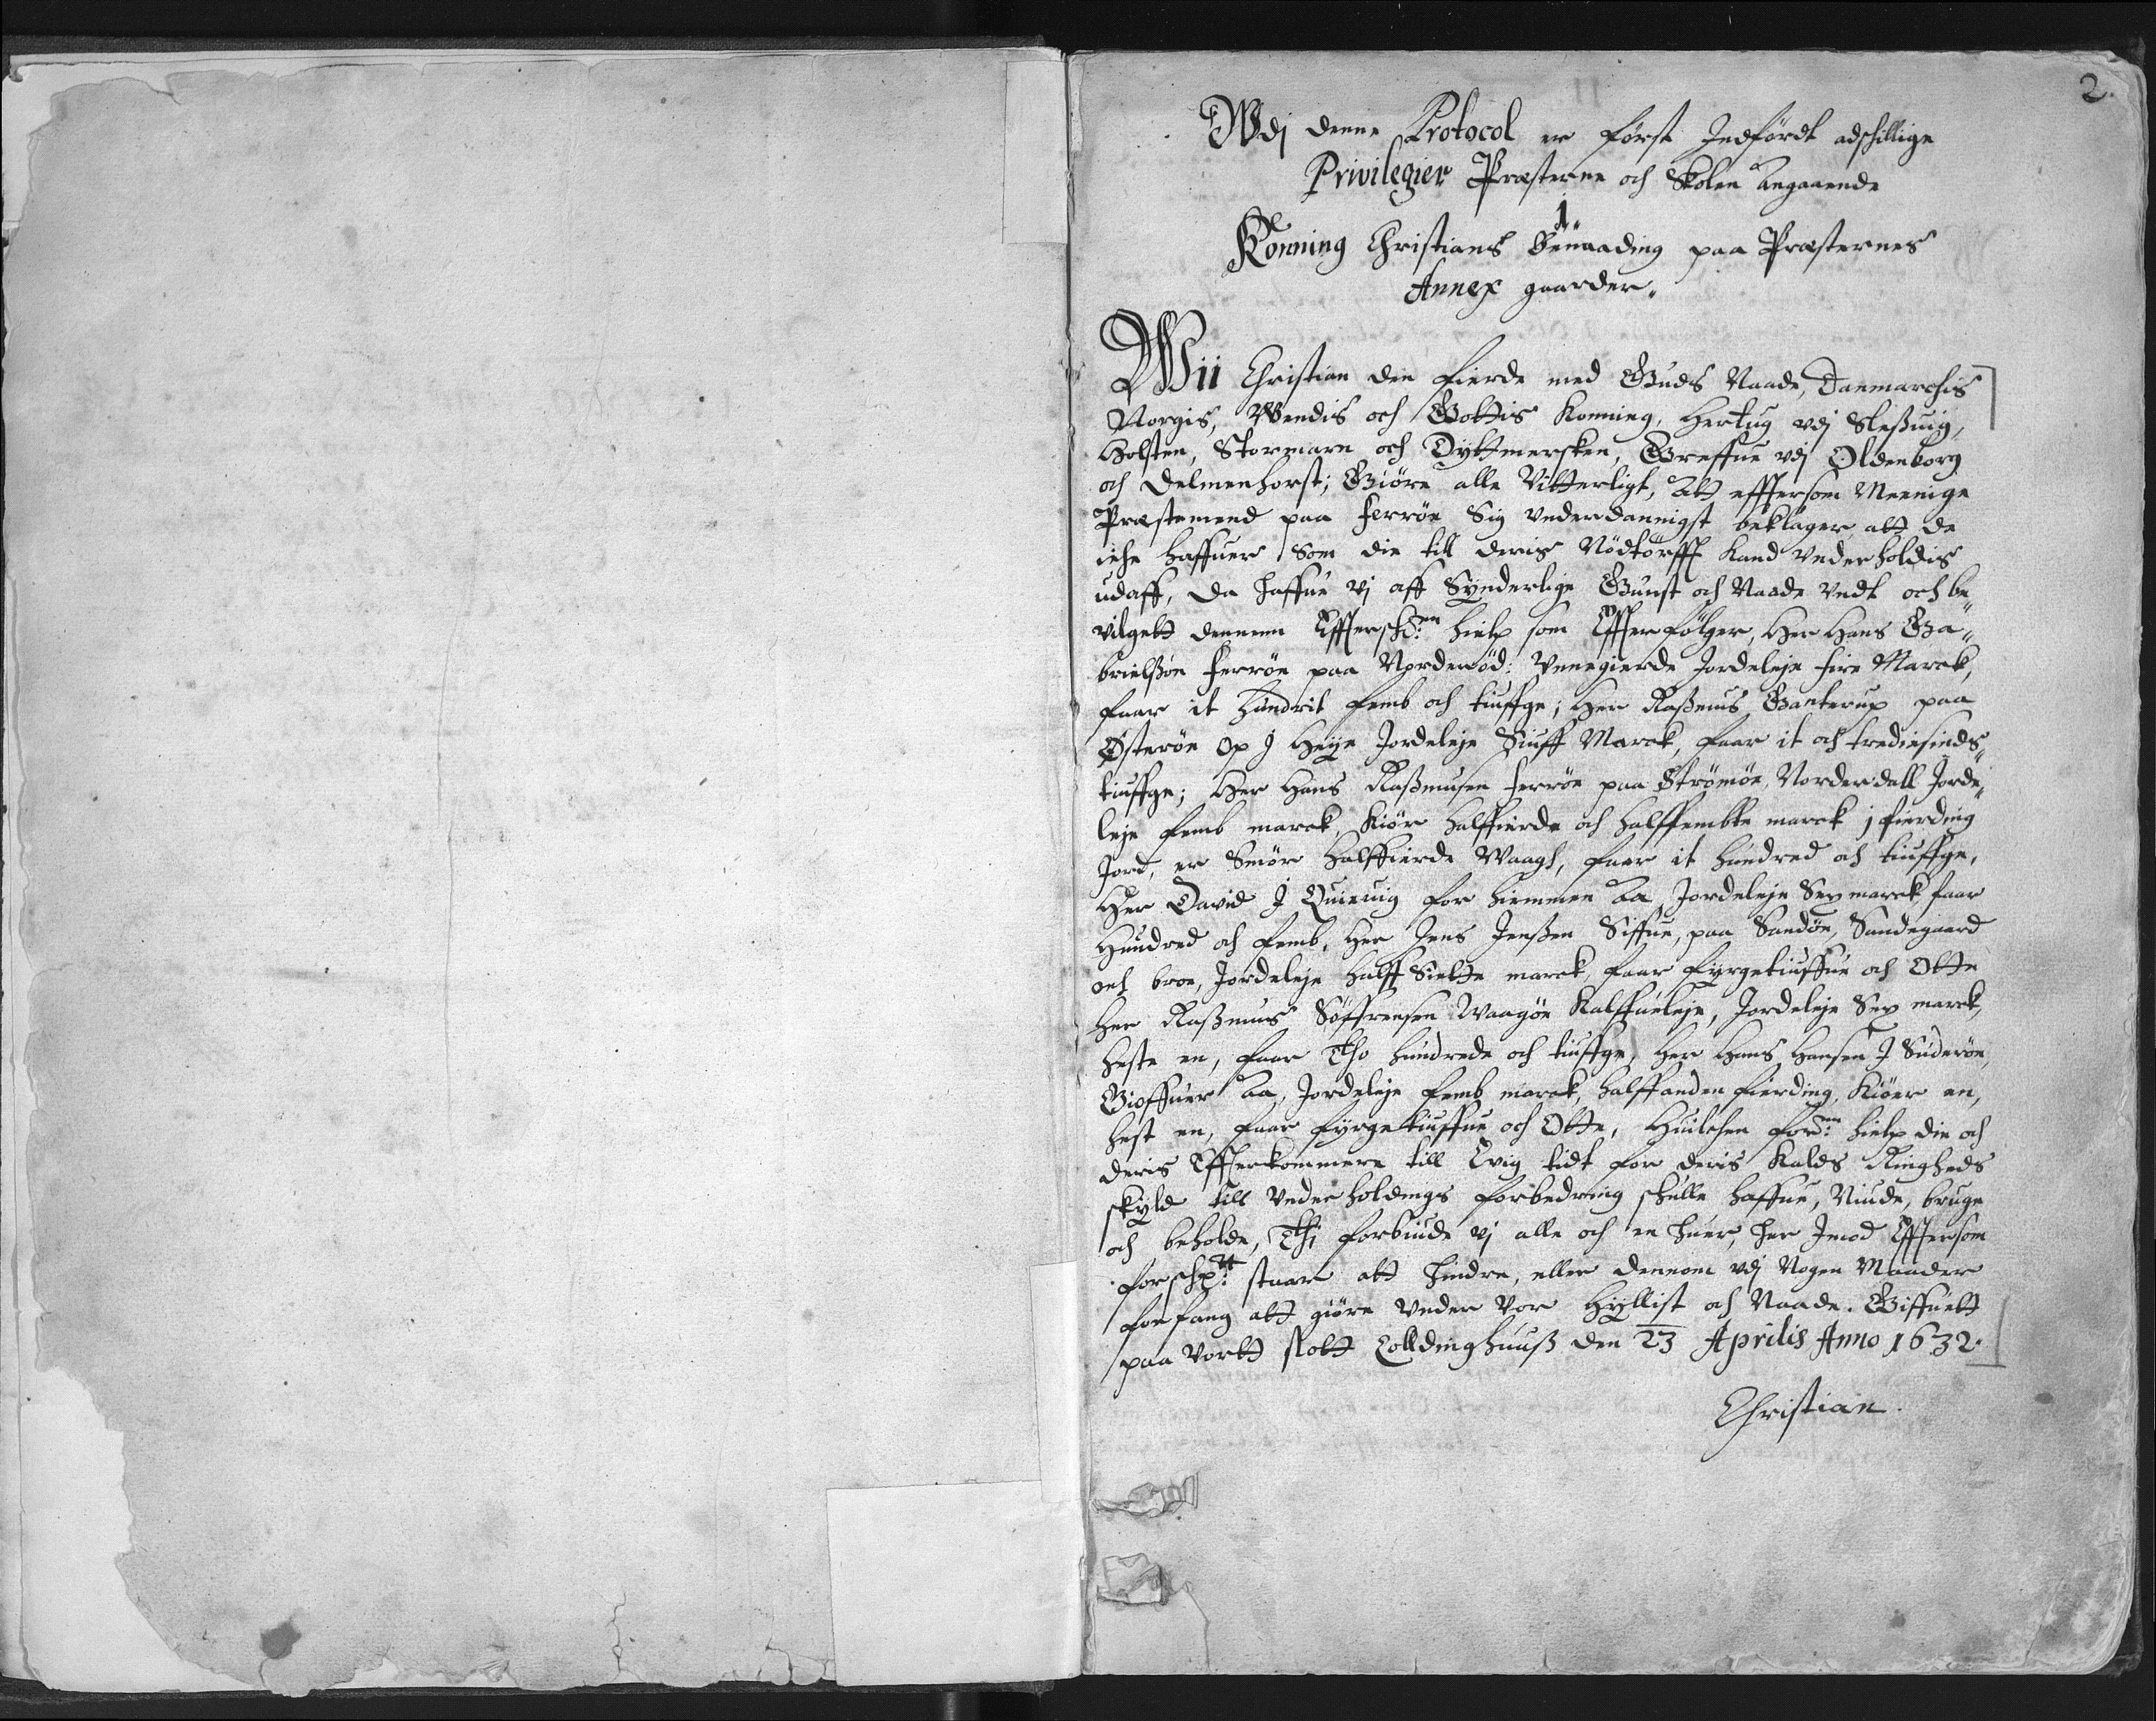 2.
Wdj denne Protocol er først Indførdt adschillige
Privilegier Præsterne och Skolen angaaende
1.
Konning Christians Benaading paa Præsternes
Annex gaarder.
Wii Christian den Fierde med Guds Naade, Danmarchis
Norgis, Wendis och Gottis Konning, Hertug vdj Sleßuig,
Holsten, Stormarn och Dyttmersken, Greffue vdj Oldenborg
och Delmenhorst; Giöre alle Vitterligt, Att efftersom Meenige
Præstemend paa Ferröe Sig vnderdannigst beklager att de
iche haffuer som die till deris Nödtörfft kand vnderholdis
udaff, da haffue vj aff Synderlige Gunst och Naade vndt och be„
vilgett dennem Effterschr:ne hielp som Effterfölger, Her Hans Ga„
brielßön Ferröe paa Norderöd: Vnnegierde Jordeleje fire Marck,
faar it hundrit femb och tiuffge; Her Raßmus Ganterup paa
Østeröe Op J Heyje Jordeleje Siuff Marck, faar it och trediesinds„
tiuffge; Her Hans Raßmusen Ferröe paa Strömöe, Norderdall Jorde„
leje femb marck, Kiör halffierde och halffembte marck j fierding
Jord, er Smör halffierde Waagh, faar it hundred och tiuffge,
Her David J Quieuig for hiemmen Aa, Jordeleje Sex marck, faar
Hundred och femb, Her Jens Jenßen Siffue, paa Sandöe, Sandegaard
och broe, Jordeleje halff Siette marck, faar fyrgetiuffue och Otte
Her Raßmus Söffrensen Waagöe Kalffueleje, Jordeleje Sex marck,
heste en, faar Tho hundrede och tiuffge, Her Hans Hansen J Suderöe,
Gioffuer Aa, Jordeleje femb marck, halffanden fierding, Kiöer en,
hest en, faar fyrgetiuffue och Otte, Huilchen for:ne hielp die och
deris Effterkommere till Evig tidt for deris Kalds Ringheds
skyld till vnderholdings forbedring schulle haffue, Niude, bruge
och beholde, Thj forbiude vj alle och en huer, her Imod Efftersom
forschr:tt staar att hindre, eller dennom vdj Nogen Maader
forfang att giöre vnder vor Hyllist och Naade. Giffuett
paa vortt slott Colldinghuuß den 23 Aprilis Anno 1632.
Christian.